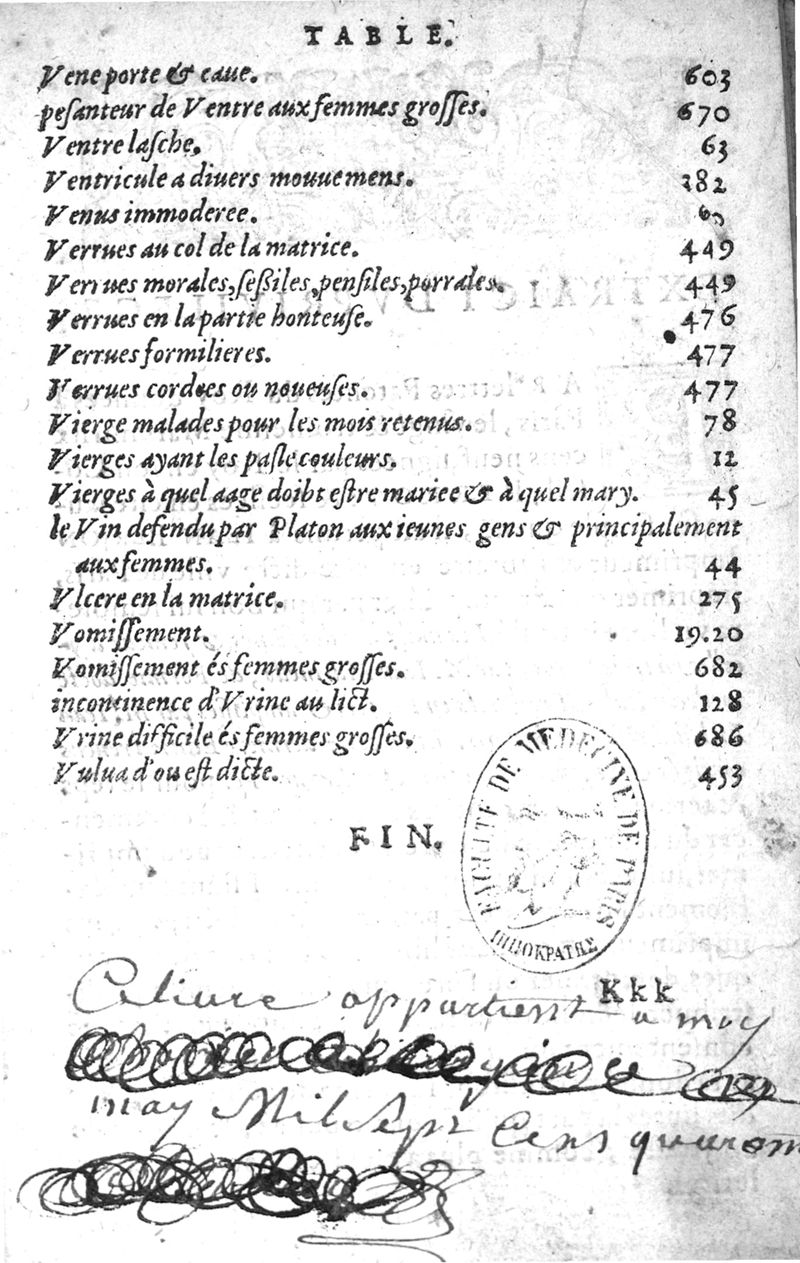 TABLE.
Vene porte & caue. 603
pesanteur de Ventre aux femmes grosses. 670
Ventre lasche. 63
Ventricule a diuers mouuemens. 382
Venus immoderee.
Verrues au col de la matrice. 449
Verrues morales, sessiles, pensiles, porrales. 449
Verrues en la partie honteuse. 476
Verrues formilieres. 477
Verrues cordees ou noueuses. 477
Vierge malades pour les mois retenus. 78
Vierges ayant les pasle couleurs. 12
Vierges à quel aage doibt estre mariee & à quel mary. 45
le Vin defendu par Platon aux ieunes gens & principalement
aux femmes. 44
Vlcere en la matrice. 275
Vomissement. 19.20
Vomissement és femmes grosses. 682
incontinence d'Vrine au lict. 128
Vrine difficile és femmes grosses. 686
Vulua d'ou est dicte. 453
FIN.
FACULTE DE MEDECINE DE PARIS
ΙΠΠΟΚΡΑΤΗΣ
Kkk
Ce liure appartient a moy
may Mil Sept Cens quaran